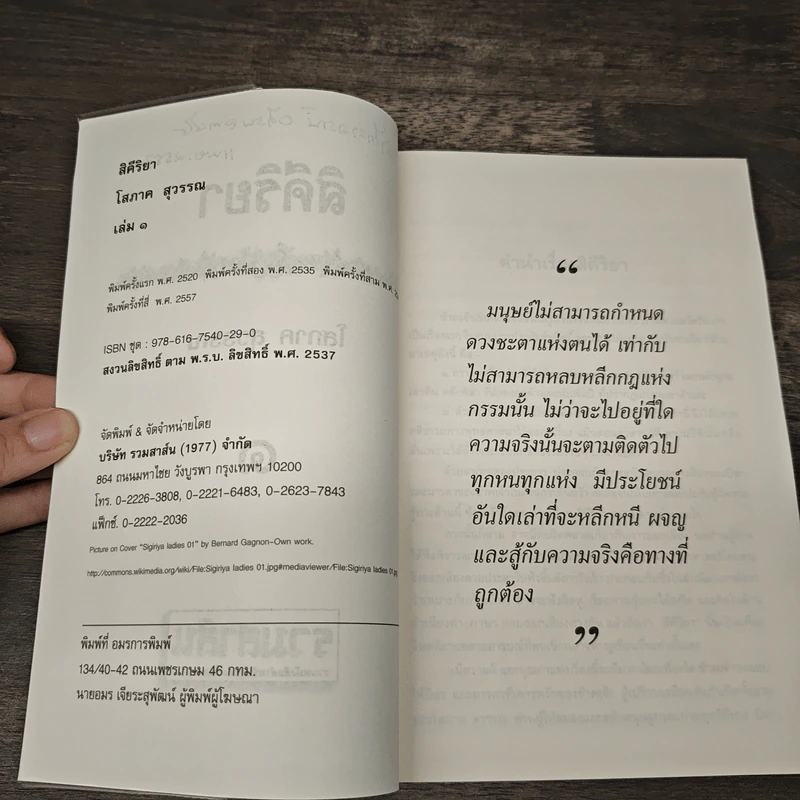 สิคีริยา
โสภาค สุวรรณ
เล่ม ๑
พิมพ์ครั้งแรก พ.ศ. 2520 พิมพ์ครั้งที่สอง พ.ศ. 2535 พิมพ์ครั้งที่สาม พ.ศ.
พิมพ์ครั้งที่สี่ พ.ศ. 2557
ISBN ชุด : 978-616-7540-29-0
สงวนลิขสิทธิ์ ตาม พ.ร.บ. ลิขสิทธิ์ พ.ศ. 2537
จัดพิมพ์ & จัดจำหน่ายโดย
บริษัท รวมสาส์น (1977) จำกัด
864 ถนนมหาไชย วังบูรพา กรุงเทพฯ 10200
โทร. 0-2226-3808, 0-2221-6483, 0-2623-7843
แฟ็กซ์. 0-2222-2036
Picture on Cover "Sigiriya ladies 01" by Bernard Gagnon-Own work.
http://commons.wikimedia.org/wiki/File:Sigiriya ladies 01.jpg#mediaviewer/File:Sigiriya ladies 01.jpg
พิมพ์ที่ อมรการพิมพ์
134/40-42 ถนนเพชรเกษม 46 กทม.
นายอมร เจียระสุพัฒน์ ผู้พิมพ์ผู้โฆษณา
“
มนุษย์ไม่สามารถกำหนด
ดวงชะตาแห่งตนได้ เท่ากับ
ไม่สามารถหลบหลีกกฎแห่ง
กรรมนั้น ไม่ว่าจะไปอยู่ที่ใด
ความจริงนั้นจะตามติดตัวไป
ทุกหนทุกแห่ง มีประโยชน์
อันใดเล่าที่จะหลีกหนี ผจญ
และสู้กับความจริงคือทางที่
ถูกต้อง
”